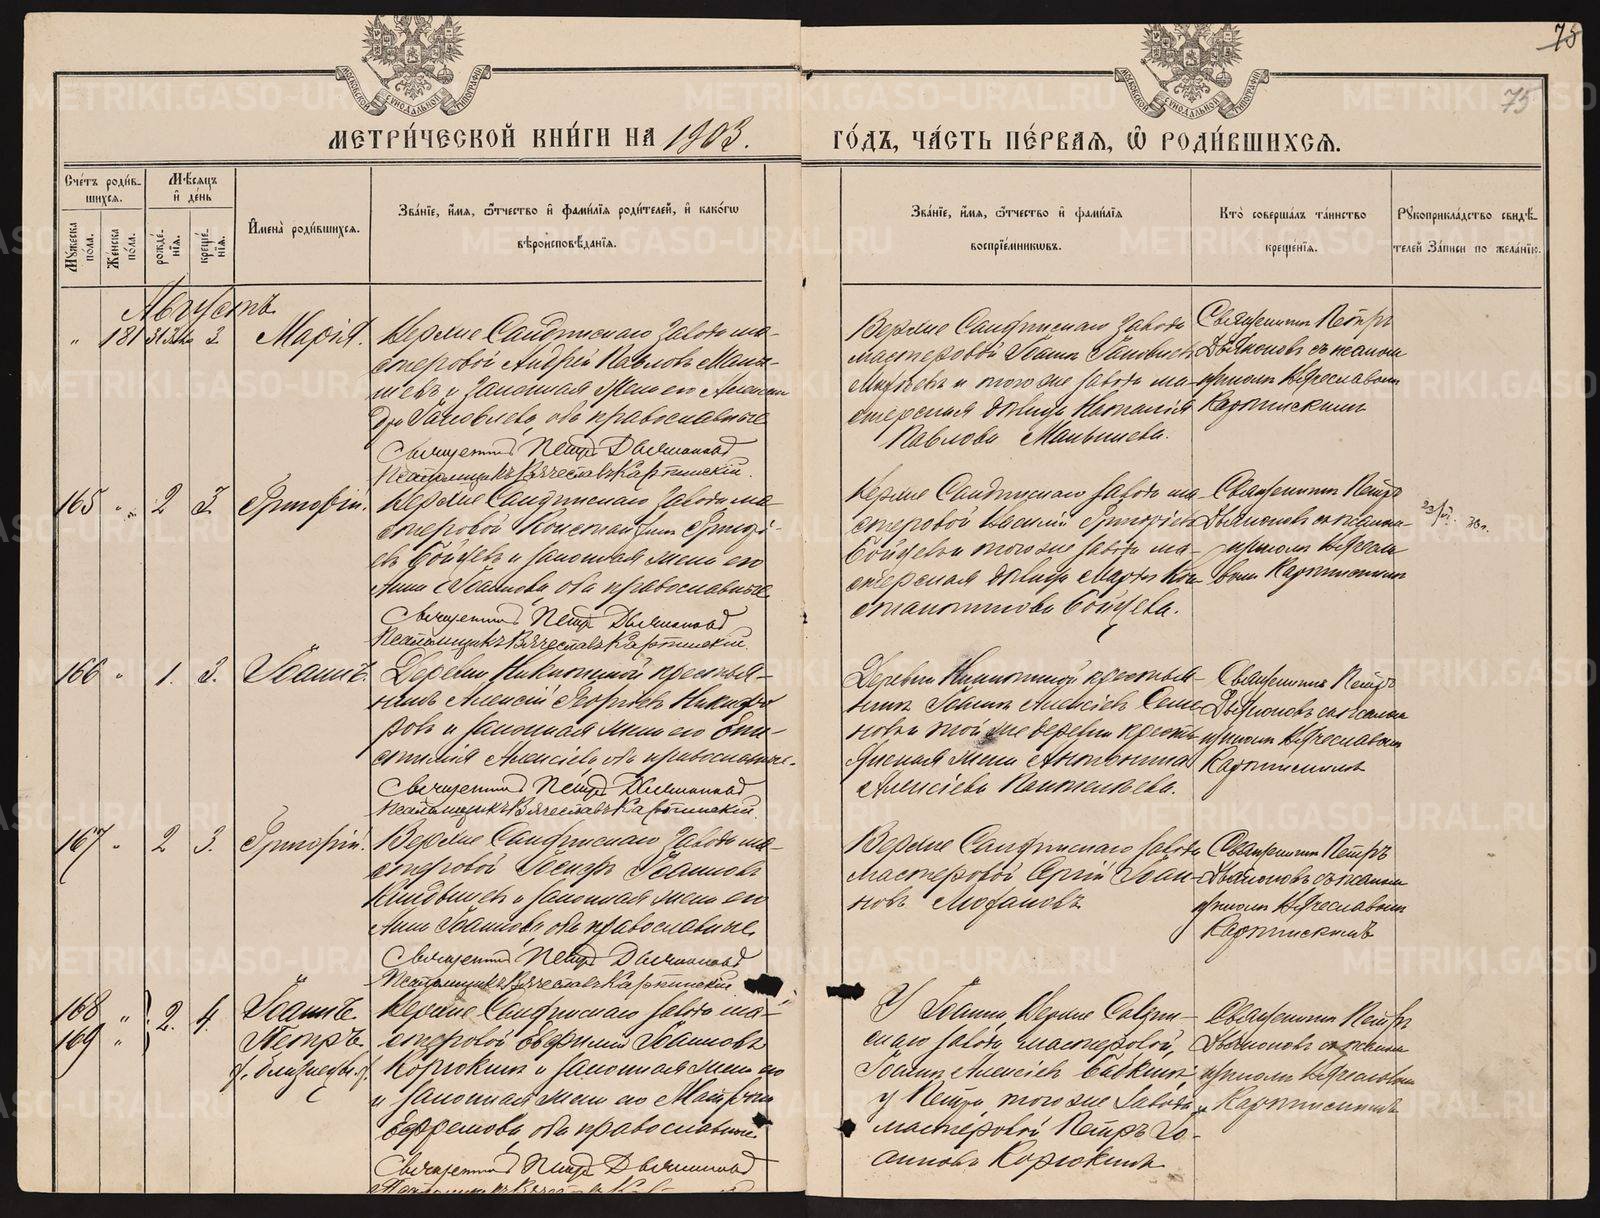 75
75
МЕТРИ́ЧЕСКОЙ КНИ́ГИ НА 1903.
ГО́ДЪ, ЧА́СТЬ ПЕ́РВАЯ, Ѡ҆ РОДИ́ВШИХСЯ.
Сче́тъ роди́в-
шихся.
Мꙋжеска по́ла.
Же́нска по́ла.
Мѣ́сяцъ и҆ де́нь
рожде́-
нїя.
креще́-
нїя.
И҆мена̀ роди́вшихся.
Зва́нїе, и҆́мя, ѻ҆́тчество и҆ фами́лїя роди́телей, и҆ како́гѡ
вѣроисповѣ́данїя.
Зва́нїе, и҆́мя, ѻ҆́тчество и҆ фами́лїя
воспрїе́мникѡвъ.
Кто̀ соверша́лъ та́инство
креще́нїя.
Рꙋкоприкла́дство свидѣ́-
телей за́писи по жела́нїю.
Августъ
" 181 31 Іюля 3. Марія.
Верхне Салдинскаго завода ма-
стеровой Андрей Павловъ Малы-
шевъ и законная жена его Алексан
дра Іаковлева, оба православные
Священник Петр Дьяконов
Псаломщикъ Вячеславъ Карпинскій.
Верхне Салдинскаго завода
мастеровой Іоаннъ Іаковлевъ
и того же завода ма-
стерская дѣвица Наталія
Павлова Малышева.
Священникъ Петръ
Дьяконовъ съ псалом
щикомъ Вячеславомъ
Карпинскимъ
165 " 2 3. Григорій.
Верхне Салдинскаго завода ма-
стеровой Константинъ Григорі-
евъ Бойцевъ и законная жена его
Анна Іоаннова, оба православные
Священник Петр Дьяконов
Псаломщикъ Вячеславъ Карпинскій.
Верхне Салдинскаго завода ма-
стеровой Василій Григорьевъ
Бойцевъ и того же завода ма-
стерская дѣвица Марѳа Кон-
стантинова Бойцева.
Священникъ Петръ
Дьяконовъ съ псалом-
щикомъ Вячесла-
вомъ Карпинскимъ
166 " 1. 3. Іоаннъ.
Деревни Никитиной крестья-
нинъ Алексій Георгіевъ Никифо
ровъ и законная жена его Евги-
Алексіева оба православные.
Священник Петр Дьяконов
Псаломщикъ Вячеславъ Карпинскій.
Деревни Никитиной крестья-
нинъ Іоаннъ Алексіевъ
и той же деревни кресть
янская жена
Алексіева Пантелѣева.
Священникъ Петръ
Дьяконовъ съ псалом
щикомъ Вячеславомъ
Карпинскимъ
167 " 2 3. Григорій.
Верхне Салдинскаго завода ма-
стеровой Іосифъ Іоанновъ
и законная жена его
Анна Іоаннова оба православные.
Священник Петр Дьяконов
Псаломщикъ Вячеславъ Карпинскій
Верхне Салдинскаго завода
мастеровой Сергій Іоан-
новъ Лохановъ
Священникъ Петръ
Дьяконовъ съ псалом
щикомъ Вячеславомъ
Карпинскимъ
168 " 2. 4. Іоаннъ.
169 " Петръ.
близнецы.
Верхне Салдинскаго завода ма-
стеровой Евфимій Іоанновъ
Корюкинъ и законная жена его
и законная жена его Матрона
Ефремова, оба православные
Священник Петр Дьяконов
У Іоанна Верхне Салдин-
скаго завода, мастеровой,
Іоаннъ Алексіевъ Бабкинъ,
у Петра, того же завода,
мастеровой Петръ Іо-
анновъ Корюкинъ
Священникъ Петръ
Дьяконовъ съ псалом
щикомъ Вячеславомъ
Карпинскимъ
METRIKI.GASO-URAL.RU